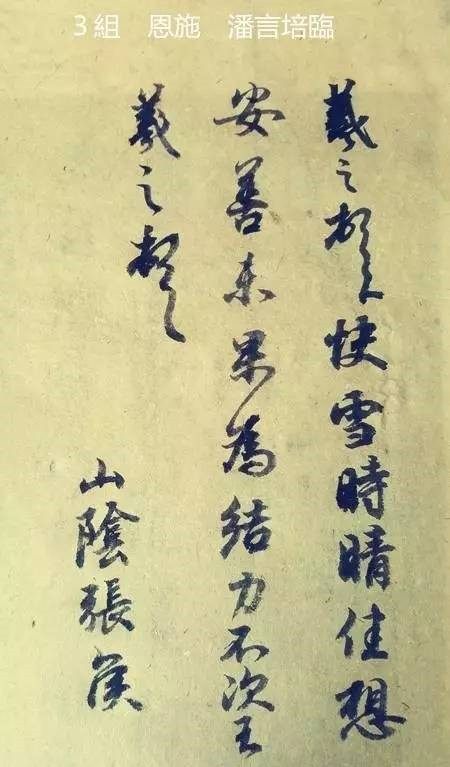 3組 恩施 潘言培臨
羲之頓首快雪時晴佳想
安善未果為結力不次王
羲之頓首
山陰張侯